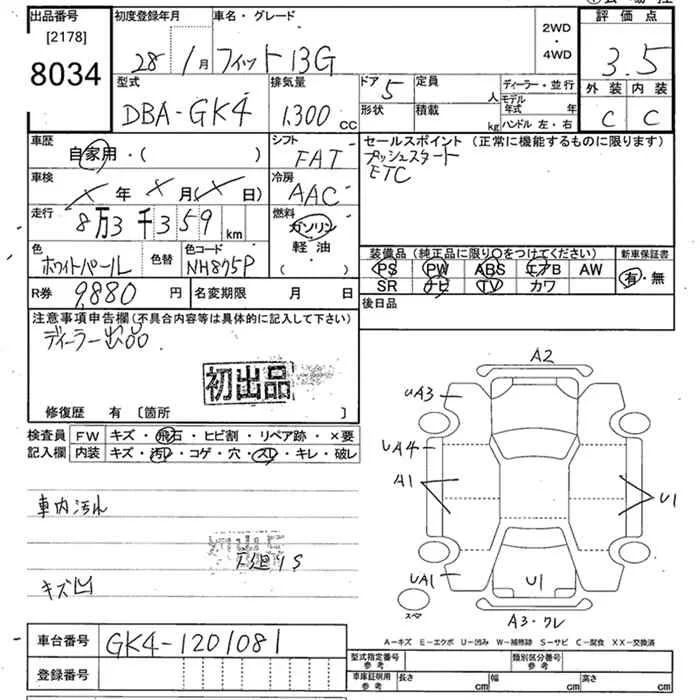 出品番号
[2178]
8034
初度登録年月
28 1月
車名・グレード
フィット 13G
2WD
・
4WD
評価点
3.5
外装 内装
C C
型式
DBA-GK4
排気量
1,300 cc
ドア 5
形状
定員 人
積載 kg
ディーラー・並行
モデル年式 年
ハンドル 左・右
車歴
自家用・( )
シフト
FAT
セールスポイント (正常に機能するものに限ります)
プッシュスタート
ETC
車検
X年 X月(X日)
冷房
AAC
走行
8万3千359 km
燃料
ガソリン
軽油
( )
色
ホワイトパール
色替
色コード
NH875P
装備品 (純正品に限り○をつけてください)
PS PW ABS エアB AW
SR ナビ TV カワ
新車保証書
有・無
R券 9,880 円
名変期限 月 日
後日品
注意事項申告欄(不具合内容等は具体的に記入して下さい)
ディーラー出品
初出品
修復歴 有 [箇所 ]
検査員
記入欄
FW キズ・飛石・ヒビ割・リペア跡・×要
内装 キズ・汚れ・コゲ・穴・スレ・キレ・破レ
車内汚れ
下廻りS
キズ凹
A2
UA3
UA4
A1
U1
UA1
U1
スペア
A3・ワレ
A-キズ E-エクボ U-凹み W-補修跡 S-サビ C-腐食 XX-交換済
車台番号 GK4-1201081
登録番号
型式指定番号
参考
類別区分番号
参考
車庫証明用
参考
長さ cm
幅 cm
高さ cm